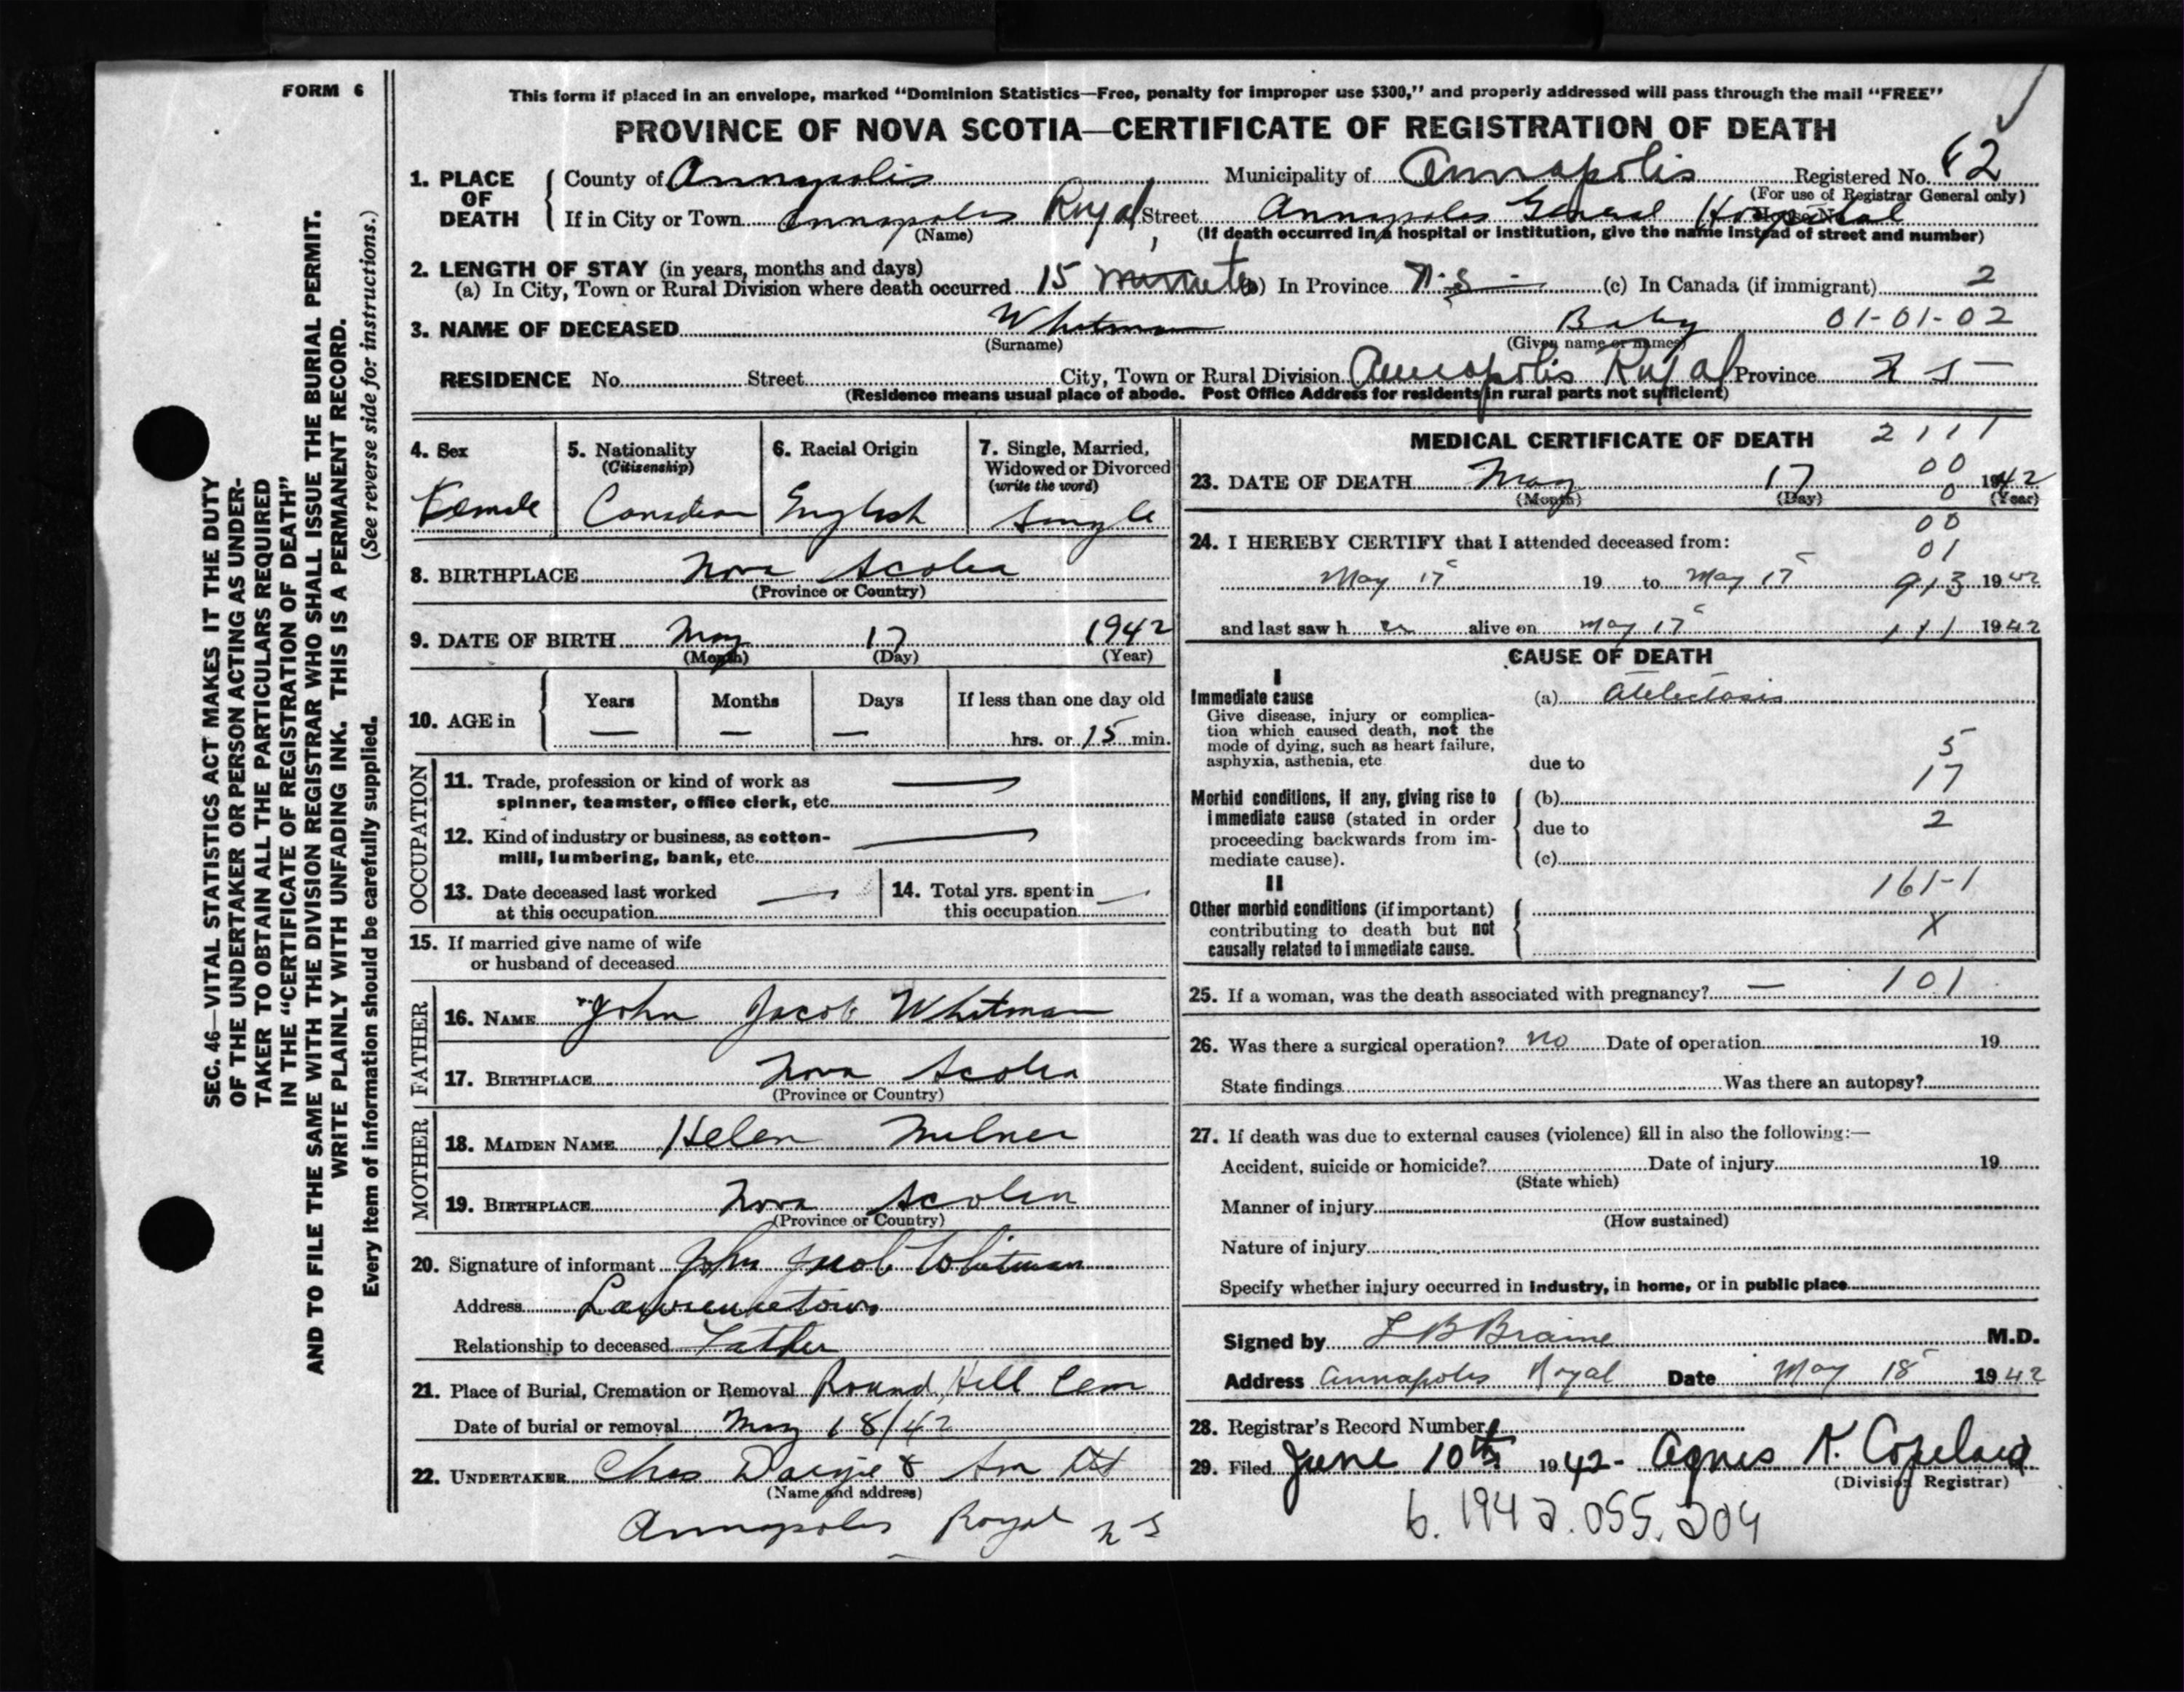 FORM 6
This form if placed in an envelope, marked “Dominion Statistics—Free, penalty for improper use $300,” and properly addressed will pass through the mail “FREE”
PROVINCE OF NOVA SCOTIA—CERTIFICATE OF REGISTRATION OF DEATH
1. PLACE OF DEATH
County of Annapolis Municipality of Annapolis Registered No. 62
(For use of Registrar General only)
If in City or Town Annapolis Royal Street Annapolis General Hospital House No.
(Name) (If death occurred in a hospital or institution, give the name instead of street and number)
2. LENGTH OF STAY (in years, months and days)
(a) In City, Town or Rural Division where death occurred 15 minutes (b) In Province N.S. (c) In Canada (if immigrant) 2
3. NAME OF DECEASED Whitman Baby 01-01-02
(Surname) (Given name or names)
RESIDENCE No. Street City, Town or Rural Division Annapolis Royal Province N S
(Residence means usual place of abode. Post Office Address for residents in rural parts not sufficient)
4. Sex 5. Nationality (Citizenship) 6. Racial Origin 7. Single, Married, Widowed or Divorced (write the word)
Female Canadian English Single
8. BIRTHPLACE Nova Scotia
(Province or Country)
9. DATE OF BIRTH May 17 1942
(Month) (Day) (Year)
10. AGE in Years Months Days If less than one day old
— — — hrs. or 15 min.
OCCUPATION
11. Trade, profession or kind of work as spinner, teamster, office clerk, etc. —
12. Kind of industry or business, as cotton-mill, lumbering, bank, etc. —
13. Date deceased last worked at this occupation — 14. Total yrs. spent in this occupation —
15. If married give name of wife or husband of deceased
FATHER
16. NAME John Jacob Whitman
17. BIRTHPLACE Nova Scotia
(Province or Country)
MOTHER
18. MAIDEN NAME Helen Milner
19. BIRTHPLACE Nova Scotia
(Province or Country)
20. Signature of informant John Jacob Whitman
Address Lawrencetown
Relationship to deceased Father
21. Place of Burial, Cremation or Removal Round Hill Cem
Date of burial or removal May 18/42
22. UNDERTAKER Chas &
(Name and address)
Annapolis Royal N S
MEDICAL CERTIFICATE OF DEATH 2111
23. DATE OF DEATH May 17 00 1942
(Month) (Day) 0 (Year)
00
24. I HEREBY CERTIFY that I attended deceased from: 01
May 17 19 to May 17 913 1942
and last saw h er alive on May 17 111 1942
CAUSE OF DEATH
I
Immediate cause (a) Atelectasis
Give disease, injury or complication which caused death, not the mode of dying, such as heart failure, asphyxia, asthenia, etc
5
due to
17
Morbid conditions, if any, giving rise to immediate cause (stated in order proceeding backwards from immediate cause).
(b)
due to 2
(c)
II 161-1
Other morbid conditions (if important) contributing to death but not causally related to immediate cause.
X
25. If a woman, was the death associated with pregnancy? — 101
26. Was there a surgical operation? no Date of operation 19
State findings Was there an autopsy?
27. If death was due to external causes (violence) fill in also the following:—
Accident, suicide or homicide? Date of injury 19
(State which)
Manner of injury
(How sustained)
Nature of injury
Specify whether injury occurred in industry, in home, or in public place
Signed by L B Braine M.D.
Address Annapolis Royal Date May 18 1942
28. Registrar's Record Number
29. Filed June 10th 1942- Agnes K. Copeland
(Division Registrar)
b. 1942.055.204
SEC. 46—VITAL STATISTICS ACT MAKES IT THE DUTY
OF THE UNDERTAKER OR PERSON ACTING AS UNDER-
TAKER TO OBTAIN ALL THE PARTICULARS REQUIRED
IN THE “CERTIFICATE OF REGISTRATION OF DEATH”
AND TO FILE THE SAME WITH THE DIVISION REGISTRAR WHO SHALL ISSUE THE BURIAL PERMIT.
WRITE PLAINLY WITH UNFADING INK. THIS IS A PERMANENT RECORD.
Every item of information should be carefully supplied. (See reverse side for instructions.)